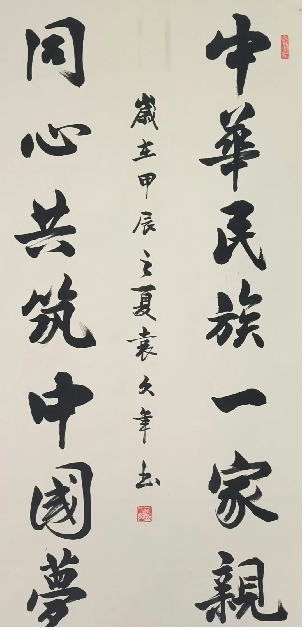 中華民族一家親
同心共筑中國夢
歲在甲辰之夏袁文年书